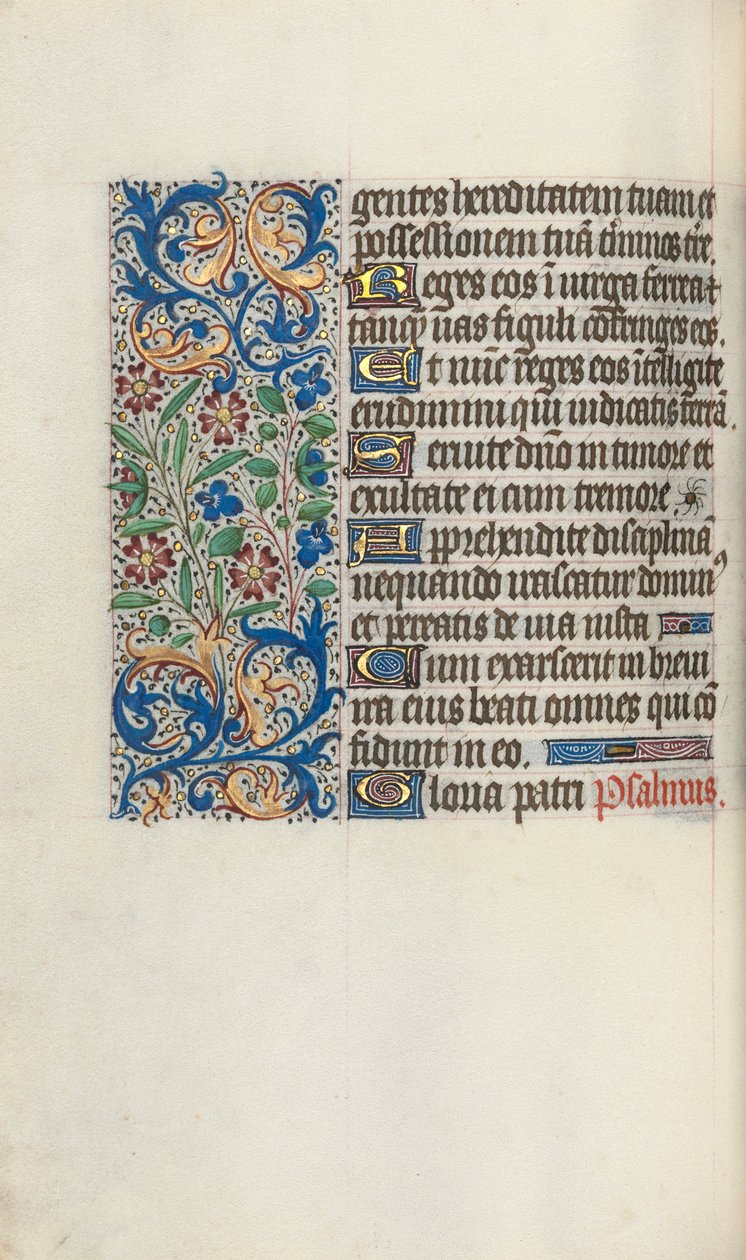 gentes hereditatem tuam et
possessionem tuā t'minos t're.
Reges eos ī uirga ferrea &
tanq̄ uas figuli cōfringes eos.
Et nūc reges eos ītelligite
erudimini qui iudicatis terrā.
Seruite dn̄o in timore et
exultate ei cum tremore.
Apprehendite disciplinā
nequando irascatur domin⁹
et pereatis de uia iusta
Cum exarscerit in breui
ira eius beati omnes qui cō
fidunt in eo.
Gloria patri Psalmus.